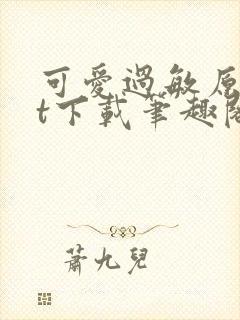 可愛過敏原
t下載筆趣閣
蕭九兒